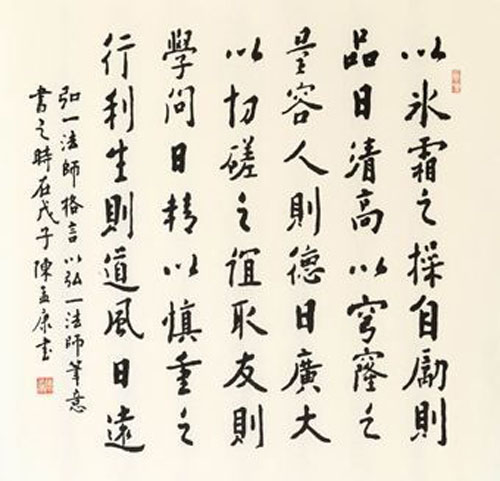 以冰霜之操自勵則
品日清高以穹窿之
量容人則德日廣大
以切磋之誼取友則
學問日精以慎重之
行利生則道風日遠
弘一法師格言以弘一法師筆意
書之時在戊子陳孟康書